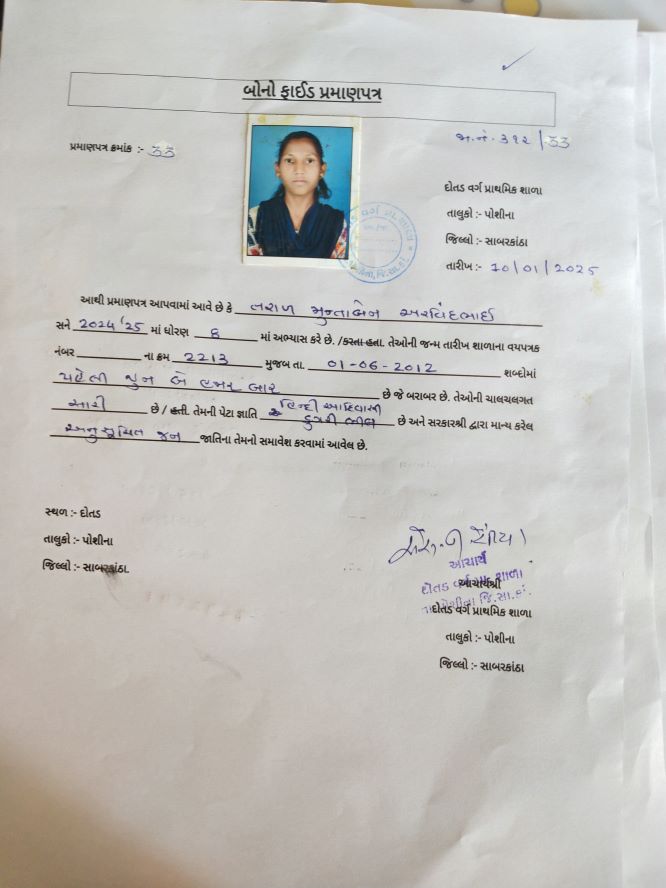 બોનો ફાઈડ પ્રમાણપત્ર
પ્રમાણપત્ર ક્રમાંક :- 33
જા.નં. ૩૧૨ / 33
દોતડ વર્ગ પ્રાથમિક શાળા
તાલુકો :- પોશીના
જિલ્લો :- સાબરકાંઠા
તારીખ :- 10/01/2025
આથી પ્રમાણપત્ર આપવામાં આવે છે કે તરાળ મુન્તાબેન અરવિંદભાઈ
સને 2024'25 માં ધોરણ 8 માં અભ્યાસ કરે છે. /કરતા હતા. તેઓની જન્મ તારીખ શાળાના વયપત્રક
નંબર ના ક્રમ 2213 મુજબ તા. 01-06-2012 શબ્દોમાં
પહેલી જુન બે હજાર બાર છે જે બરાબર છે. તેઓની ચાલચલગત
સારી છે / હતી. તેમની પેટા જ્ઞાતિ હિન્દી આદિવાસી ડુંગરી ભીલ છે અને સરકારશ્રી દ્વારા માન્ય કરેલ
અનુસૂચિત જન જાતિના તેમનો સમાવેશ કરવામાં આવેલ છે.
સ્થળ :- દોતડ
તાલુકો :- પોશીના
જિલ્લો :- સાબરકાંઠા.
આચાર્ય
દોતડ વર્ગ શાળા
આચાર્યશ્રી
જિ.સા.કાં.
દોતડ વર્ગ પ્રાથમિક શાળા
તાલુકો :- પોશીના
જિલ્લો :- સાબરકાંઠા